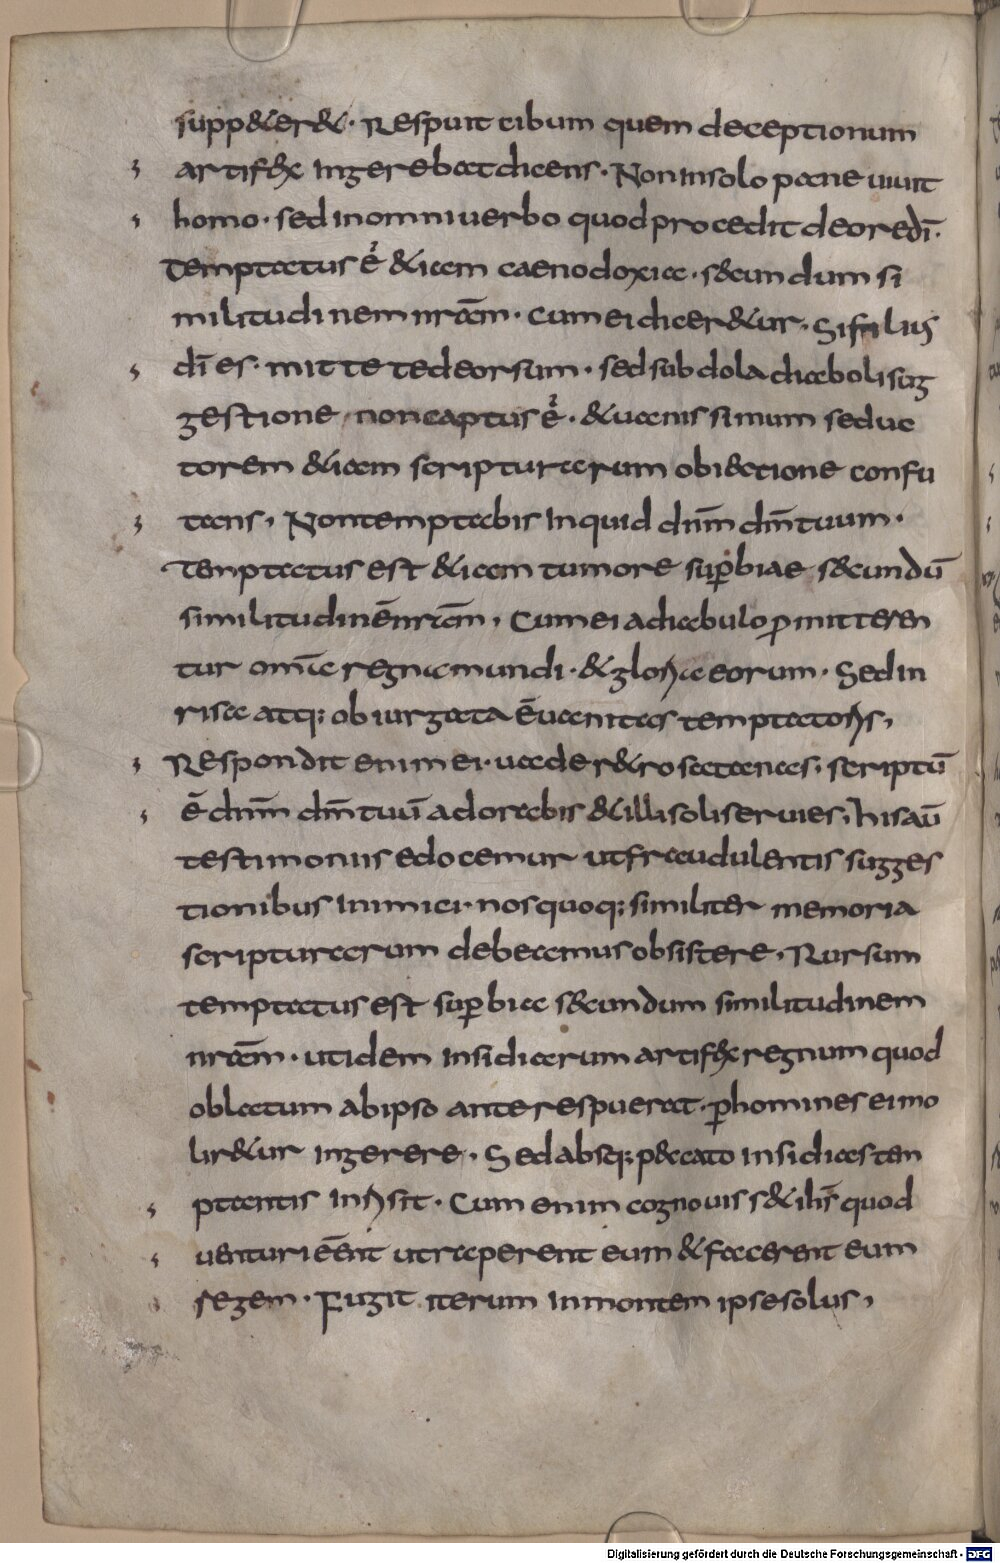 supp&er&. Respuit cibum quem deceptionum
artifex ingerebat dicens. Non in solo pane uiuit
homo. sed in omni uerbo quod procedit de ore dī.
Temptatus ē &iam caenodoxia. s&cundum si
militudinem nr̄am. cum ei dicer&ur. Si filius
dī es. mitte te deorsum. sed subdola diaboli sug
gestione non captus ē. & uanissimum seduc
torem &iam scripturarum obiectione confu
tans. Non temptabis inquid dnm̄ dm̄ tuum.
Temptatus est &iam tumore sup̄biae s&cundū
similitudinē nr̄am. Cum ei a diabulo p̄mitteren
tur omīa regna mundi. & gloria eorum. Sed in
risa atq; obiurgata ē uanitas temptatoris,
Respondit enim ei. uade r&ro satanas. scriptū
ē dnm̄ dm̄ tuū adorabis & illi soli seruies, his aū
testimoniis edocemur ut fraudulentis sugges
tionibus inimici. nos quoq; similiter memoria
scripturarum debeamus obsistere, Rursum
temptatus est sup̄bia s&cundum similitudinem
nr̄am. ut idem insidiarum artifex regnum quod
oblatum ab ipso ante respuerat. p̄ homines ei mo
lir&ur ingerere, Sed absq; p&ccato insidias tem
ptantis inrisit. Cum enim cognouiss& ihs̄ quod
uenturi eēnt ut raperent eum & facerent eum
regem. Fugit iterum in montem ipse solus,
Digitalisierung gefördert durch die Deutsche Forschungsgemeinschaft - DFG